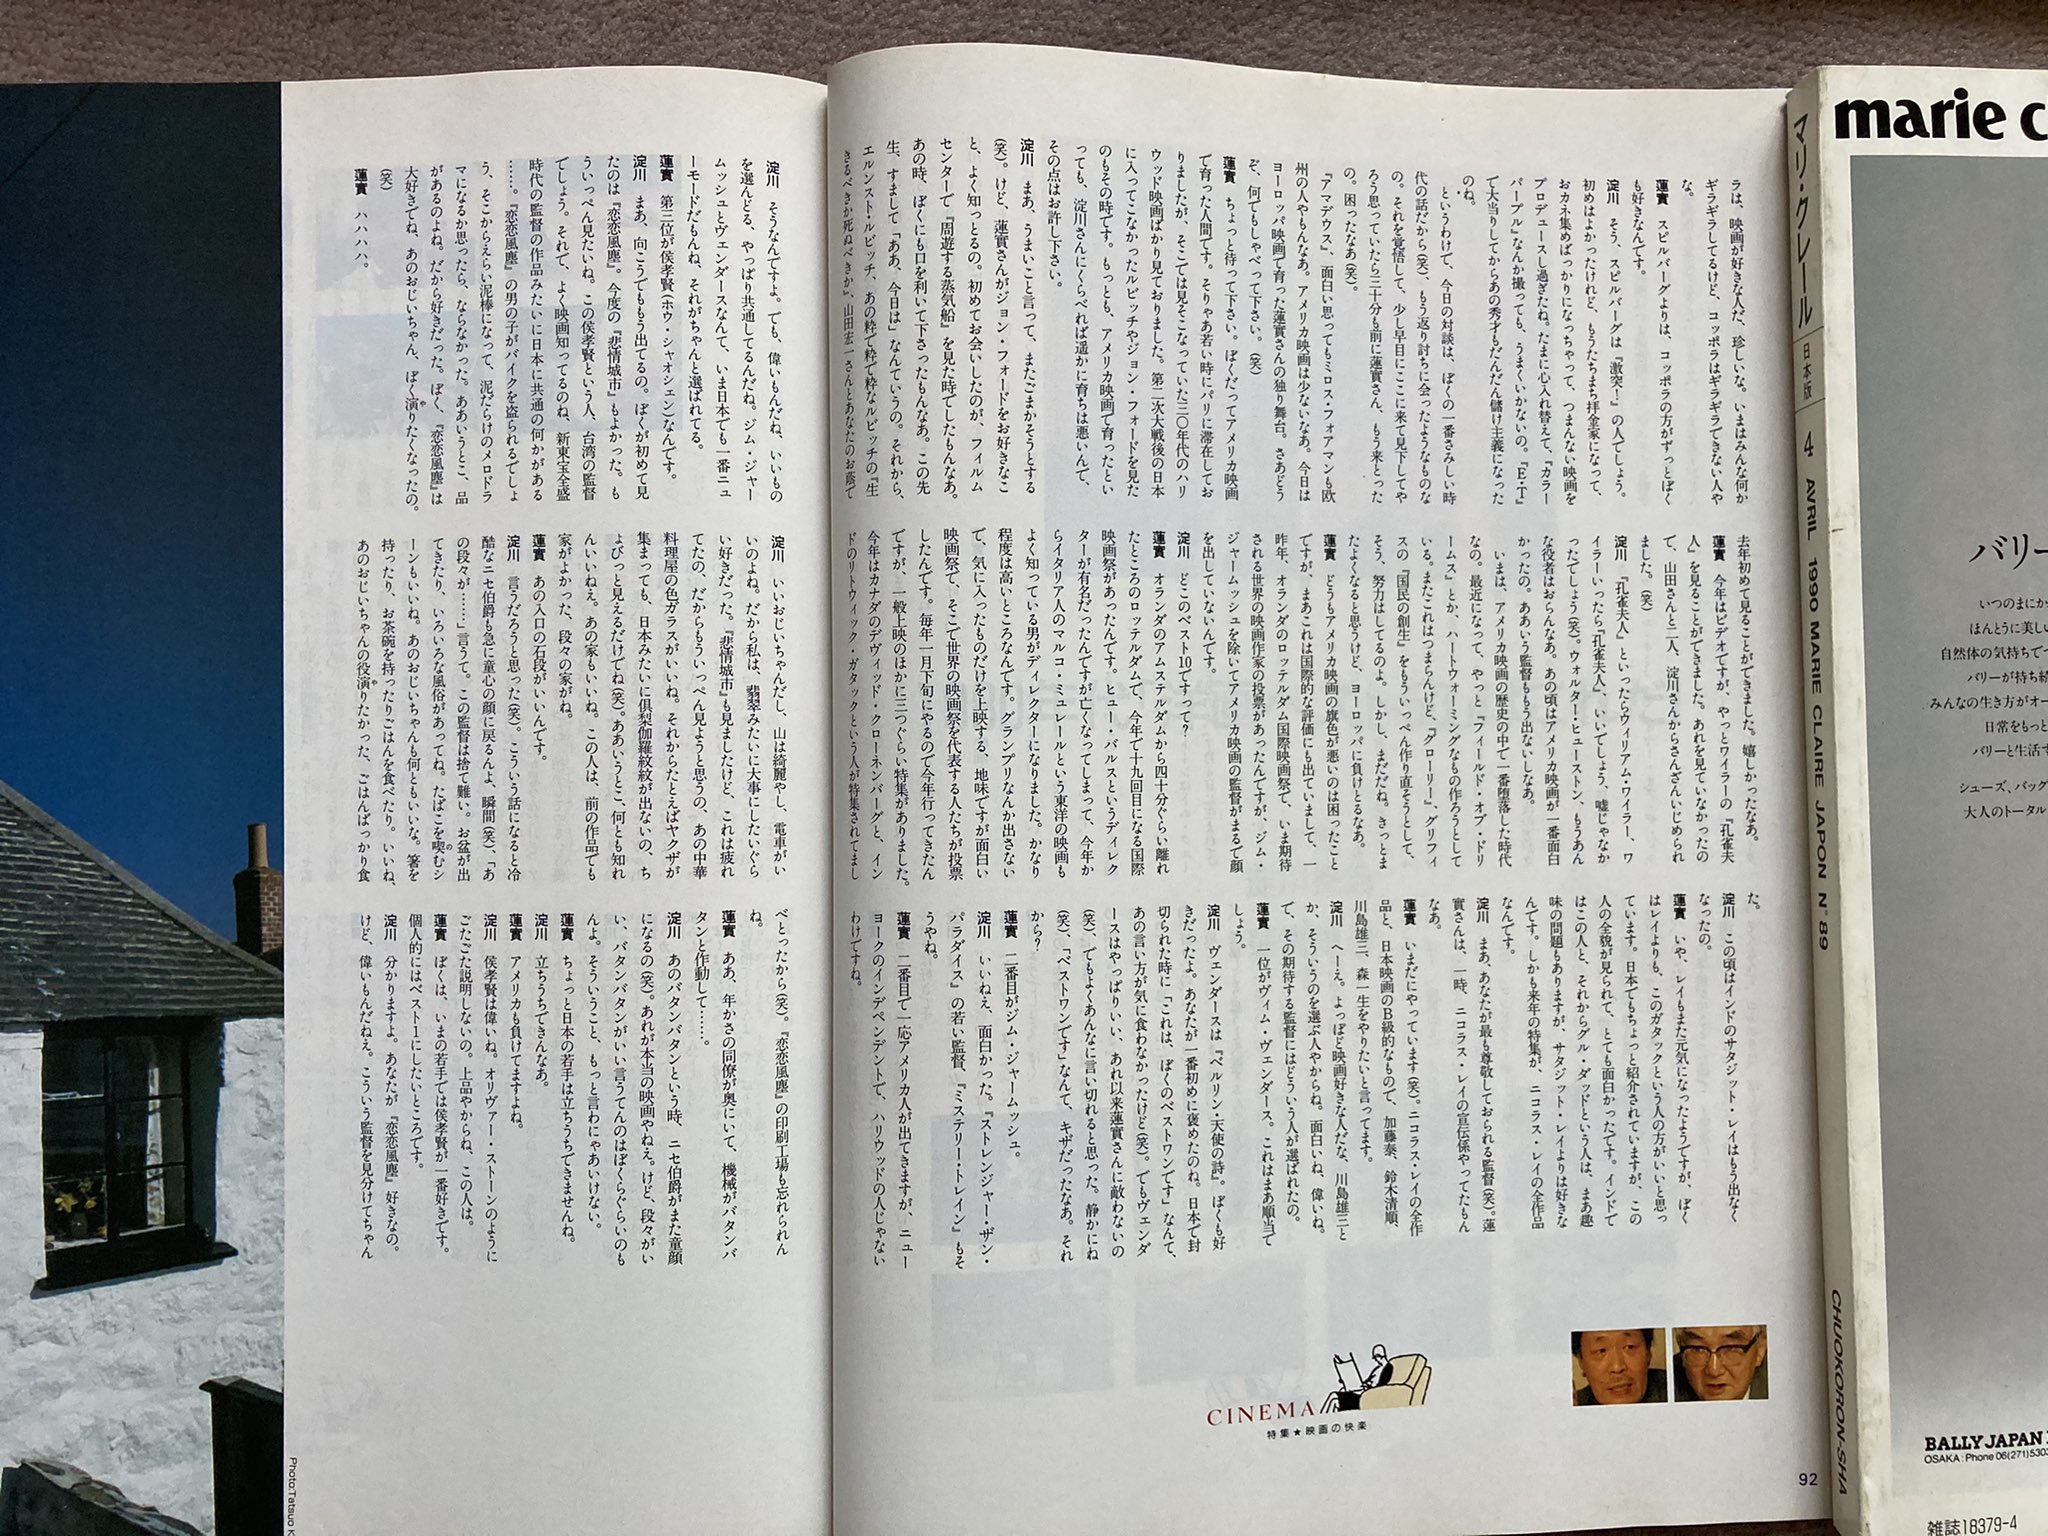 ラは、映画が好きな人だ、珍しいな。いまはみんな何か
ギラギラしてるけど、コッポラはギラギラできない人や
な。
蓮實 スピルバーグよりは、コッポラの方がずっとぼく
も好きなんです。
淀川 そう、スピルバーグは『激突!』の人でしょう。
初めはよかったけれど、もうたちまち拝金家になって、
おカネ集めばっかりになっちゃって、つまんない映画を
プロデュースし過ぎたね。たまに心入れ替えて、『カラー
パープル』なんか撮っても、うまくいかないの。『E・T』
で大当りしてからあの秀才もだんだん儲け主義になった
のね。
というわけで、今日の対談は、ぼくの一番さみしい時
代の話だから(笑)、もう返り討ちに会ったようなものな
の。それを覚悟して、少し早目にここに来て見下してや
ろう思っていたら三十分も前に蓮實さん、もう来とった
の。困ったなあ(笑)。
『アマデウス』、面白い思ってもミロス・フォアマンも欧
州の人やもんなあ。アメリカ映画は少ないなあ。今日は
ヨーロッパ映画で育った蓮實さんの独り舞台。さあどう
ぞ、何でもしゃべって下さい。(笑)
蓮實 ちょっと待って下さい。ぼくだってアメリカ映画
で育った人間です。そりゃあ若い時にパリに滞在してお
りましたが、そこでは見そこなっていた三〇年代のハリ
ウッド映画ばかり見ておりました。第二次大戦後の日本
に入ってこなかったルビッチやジョン・フォードを見た
のもその時です。もっとも、アメリカ映画で育ったとい
っても、淀川さんにくらべれば遥かに育ちは悪いんで、
その点はお許し下さい。
淀川 まあ、うまいこと言って、またごまかそうとする
(笑)。けど、蓮實さんがジョン・フォードをお好きなこ
と、よく知っとるの。初めてお会いしたのが、フィルム
センターで『周遊する蒸気船』を見た時でしたもんなあ。
あの時、ぼくにも口を利いて下さったもんなあ。この先
生、すまして「ああ、今日は」なんていうの。それから、
エルンスト・ルビッチ、あの粋で粋で粋なルビッチの『生
きるべきか死ぬべきか』、山田宏一さんとあなたのお蔭で
去年初めて見ることができました。嬉しかったなあ。
蓮實 今年はビデオですが、やっとワイラーの『孔雀夫
人』を見ることができました。あれを見ていなかったの
で、山田さんと二人、淀川さんからさんざんいじめられ
ました。(笑)
淀川 『孔雀夫人』といったらウィリアム・ワイラー、ワ
イラーいったら『孔雀夫人』、いいでしょう、嘘じゃなか
ったでしょう(笑)。ウォルター・ヒューストン、もうあん
な役者はおらんなあ。あの頃はアメリカ映画が一番面白
かったの。ああいう監督ももう出ないしなあ。
いまは、アメリカ映画の歴史の中で一番堕落した時代
なの。最近になって、やっと『フィールド・オブ・ドリ
ームス』とか、ハートウォーミングなもの作ろうとして
いる。またこれはつまらんけど、『グローリー』、グリフィ
スの『国民の創生』をもういっぺん作り直そうとして、
そう、努力はしてるのよ。しかし、まだだね。きっとま
たよくなると思うけど、ヨーロッパに負けとるなあ。
蓮實 どうもアメリカ映画の旗色が悪いのは困ったこと
ですが、まあこれは国際的な評価にも出ていまして、一
昨年、オランダのロッテルダム国際映画祭で、いま期待
される世界の映画作家の投票があったんですが、ジム・
ジャームッシュを除いてアメリカ映画の監督がまるで顔
を出していないんです。
淀川 どこのベスト10ですって?
蓮實 オランダのアムステルダムから四十分ぐらい離れ
たところのロッテルダムで、今年で十九回目になる国際
映画祭があったんです。ヒュー・バルスというディレク
ターが有名だったんですが亡くなってしまって、今年か
らイタリア人のマルコ・ミュレールという東洋の映画も
よく知っている男がディレクターになりました。かなり
程度は高いところなんです。グランプリなんか出さない
で、気に入ったものだけを上映する、地味ですが面白い
映画祭で、そこで世界の映画祭を代表する人たちが投票
したんです。毎年一月下旬にやるので今年行ってきたん
ですが、一般上映のほかに三つぐらい特集がありました。
今年はカナダのデヴィッド・クローネンバーグと、イン
ドのリトウィック・ガタックという人が特集されてまし
た。
淀川 この頃はインドのサタジット・レイはもう出なく
なったの。
蓮實 いや、レイもまた元気になったようですが、ぼく
はレイよりも、このガタックという人の方がいいと思っ
ています。日本でもちょっと紹介されていますが、この
人の全貌が見られて、とても面白かったです。インドで
はこの人と、それからグル・ダッドという人は、まあ趣
味の問題もありますが、サタジット・レイよりは好きな
んです。しかも来年の特集が、ニコラス・レイの全作品
なんです。
淀川 まあ、あなたが最も尊敬しておられる監督(笑)。蓮
實さんは、一時、ニコラス・レイの宣伝係やってたもん
なあ。
蓮實 いまだにやっています(笑)。ニコラス・レイの全作
品と、日本映画のB級的なもので、加藤泰、鈴木清順、
川島雄三、森一生をやりたいと言ってます。
淀川 へーえ。よっぽど映画好きな人だな、川島雄三と
か、そういうのを選ぶ人やからね。面白いね、偉いね。
で、その期待する監督にはどういう人が選ばれたの。
蓮實 一位がヴィム・ヴェンダース。これはまあ順当で
しょう。
淀川 ヴェンダースは『ベルリン・天使の詩』。ぼくも好
きだったよ。あなたが一番初めに褒めたのね。日本で封
切られた時に「これは、ぼくのベストワンです」なんて、
あの言い方が気に食わなかったけど(笑)。でもヴェンダ
ースはやっぱりいい、あれ以来蓮實さんに敵わないの
(笑)、でもよくあんなに言い切れると思った。静かにね
(笑)、「ベストワンです」なんて、キザだったなあ。それ
から?
蓮實 二番目がジム・ジャームッシュ。
淀川 いいねえ、面白かった。『ストレンジャー・ザン・
パラダイス』の若い監督、『ミステリー・トレイン』もそ
うやね。
蓮實 二番目で一応アメリカ人が出てきますが、ニュー
ヨークのインデペンデントで、ハリウッドの人じゃない
わけですね。
淀川 そうなんですよ。でも、偉いもんだね、いいもの
を選んどる、やっぱり共通してるんだね。ジム・ジャー
ムッシュとヴェンダースなんて、いま日本でも一番ニュ
ーモードだもんね、それがちゃんと選ばれてる。
蓮實 第三位が侯孝賢(ホウ・シャオシェン)なんです。
淀川 まあ、向こうでももう出てるの。ぼくが初めて見
たのは『恋恋風塵』。今度の『悲情城市』もよかった。も
ういっぺん見たいね。この侯孝賢という人、台湾の監督
でしょう。それで、よく映画知ってるのね、新東宝全盛
時代の監督の作品みたいに日本に共通の何かがある
……。『恋恋風塵』の男の子がバイクを盗られるでしょ
う、そこからえらい泥棒になって、泥だらけのメロドラ
マになるか思ったら、ならなかった。ああいうとこ、品
があるのよね。だから好きだった。ぼく、『恋恋風塵』は
大好きでね、あのおじいちゃん、ぼく演りたくなったの。
(笑)
蓮實 ハハハハ。
淀川 いいおじいちゃんだし、山は綺麗やし、電車がい
いのよね。だから私は、翡翠みたいに大事にしたいぐら
い好きだった。『悲情城市』も見ましたけど、これは疲れ
てたの、だからもういっぺん見ようと思うの、あの中華
料理屋の色ガラスがいいね。それからたとえばヤクザが
集まっても、日本みたいに倶梨伽羅紋紋が出ないの、ち
ょびっと見えるだけでね(笑)。ああいうとこ、何とも知れ
んいいねえ。あの家もいいね。この人は、前の作品でも
家がよかった、段々の家がね。
蓮實 あの入口の石段がいいんです。
淀川 言うだろうと思った(笑)。こういう話になると冷
酷なニセ伯爵も急に童心の顔に戻るんよ、瞬間(笑)、「あ
の段々が……」言うて。この監督は捨て難い。お盆が出
てきたり、いろいろな風俗があってね。たばこを喫むシ
ーンもいいね。あのおじいちゃんも何ともいいな。箸を
持ったり、お茶碗を持ったりごはんを食べたり。いいね、
あのおじいちゃんの役演りたかった、ごはんばっかり食
べとったから(笑)。『恋恋風塵』の印刷工場も忘れられん
ね。
蓮實 ああ、年かさの同僚が奥にいて、機械がバタンバ
タンと作動して……。
淀川 あのバタンバタンという時、ニセ伯爵がまた童顔
になるの(笑)。あれが本当の映画やねえ。けど、段々がい
い、バタンバタンがいい言うてんのはぼくらぐらいのも
んよ。そういうこと、もっと言わにゃあいけない。
蓮實 ちょっと日本の若手は立ちうちできませんね。
淀川 立ちうちできんなあ。
蓮實 アメリカも負けてますよね。
淀川 侯孝賢は偉いね。オリヴァー・ストーンのように
ごたごた説明しないの。上品やからね、この人は。
蓮實 ぼくは、いまの若手では侯孝賢が一番好きです。
個人的にはベスト1にしたいところです。
淀川 分かりますよ。あなたが『恋恋風塵』好きなの。
けど、偉いもんだねえ。こういう監督を見分けてちゃん
CINEMA
特集★映画の快楽
92
Photo:Tatsuo K
マリ・クレール 日本版 4 AVRIL 1990 MARIE CLAIRE JAPON N°89
CHUOKORON-SHA
marie c
バリー
いつのまにか
ほんとうに美しい
自然体の気持ちで
バリーが持ち続
みんなの生き方がオー
日常をもっと
バリーと生活す
シューズ、バッグ
大人のトータル
BALLY JAPAN
OSAKA:Phone 06(271)530
雑誌18379-4